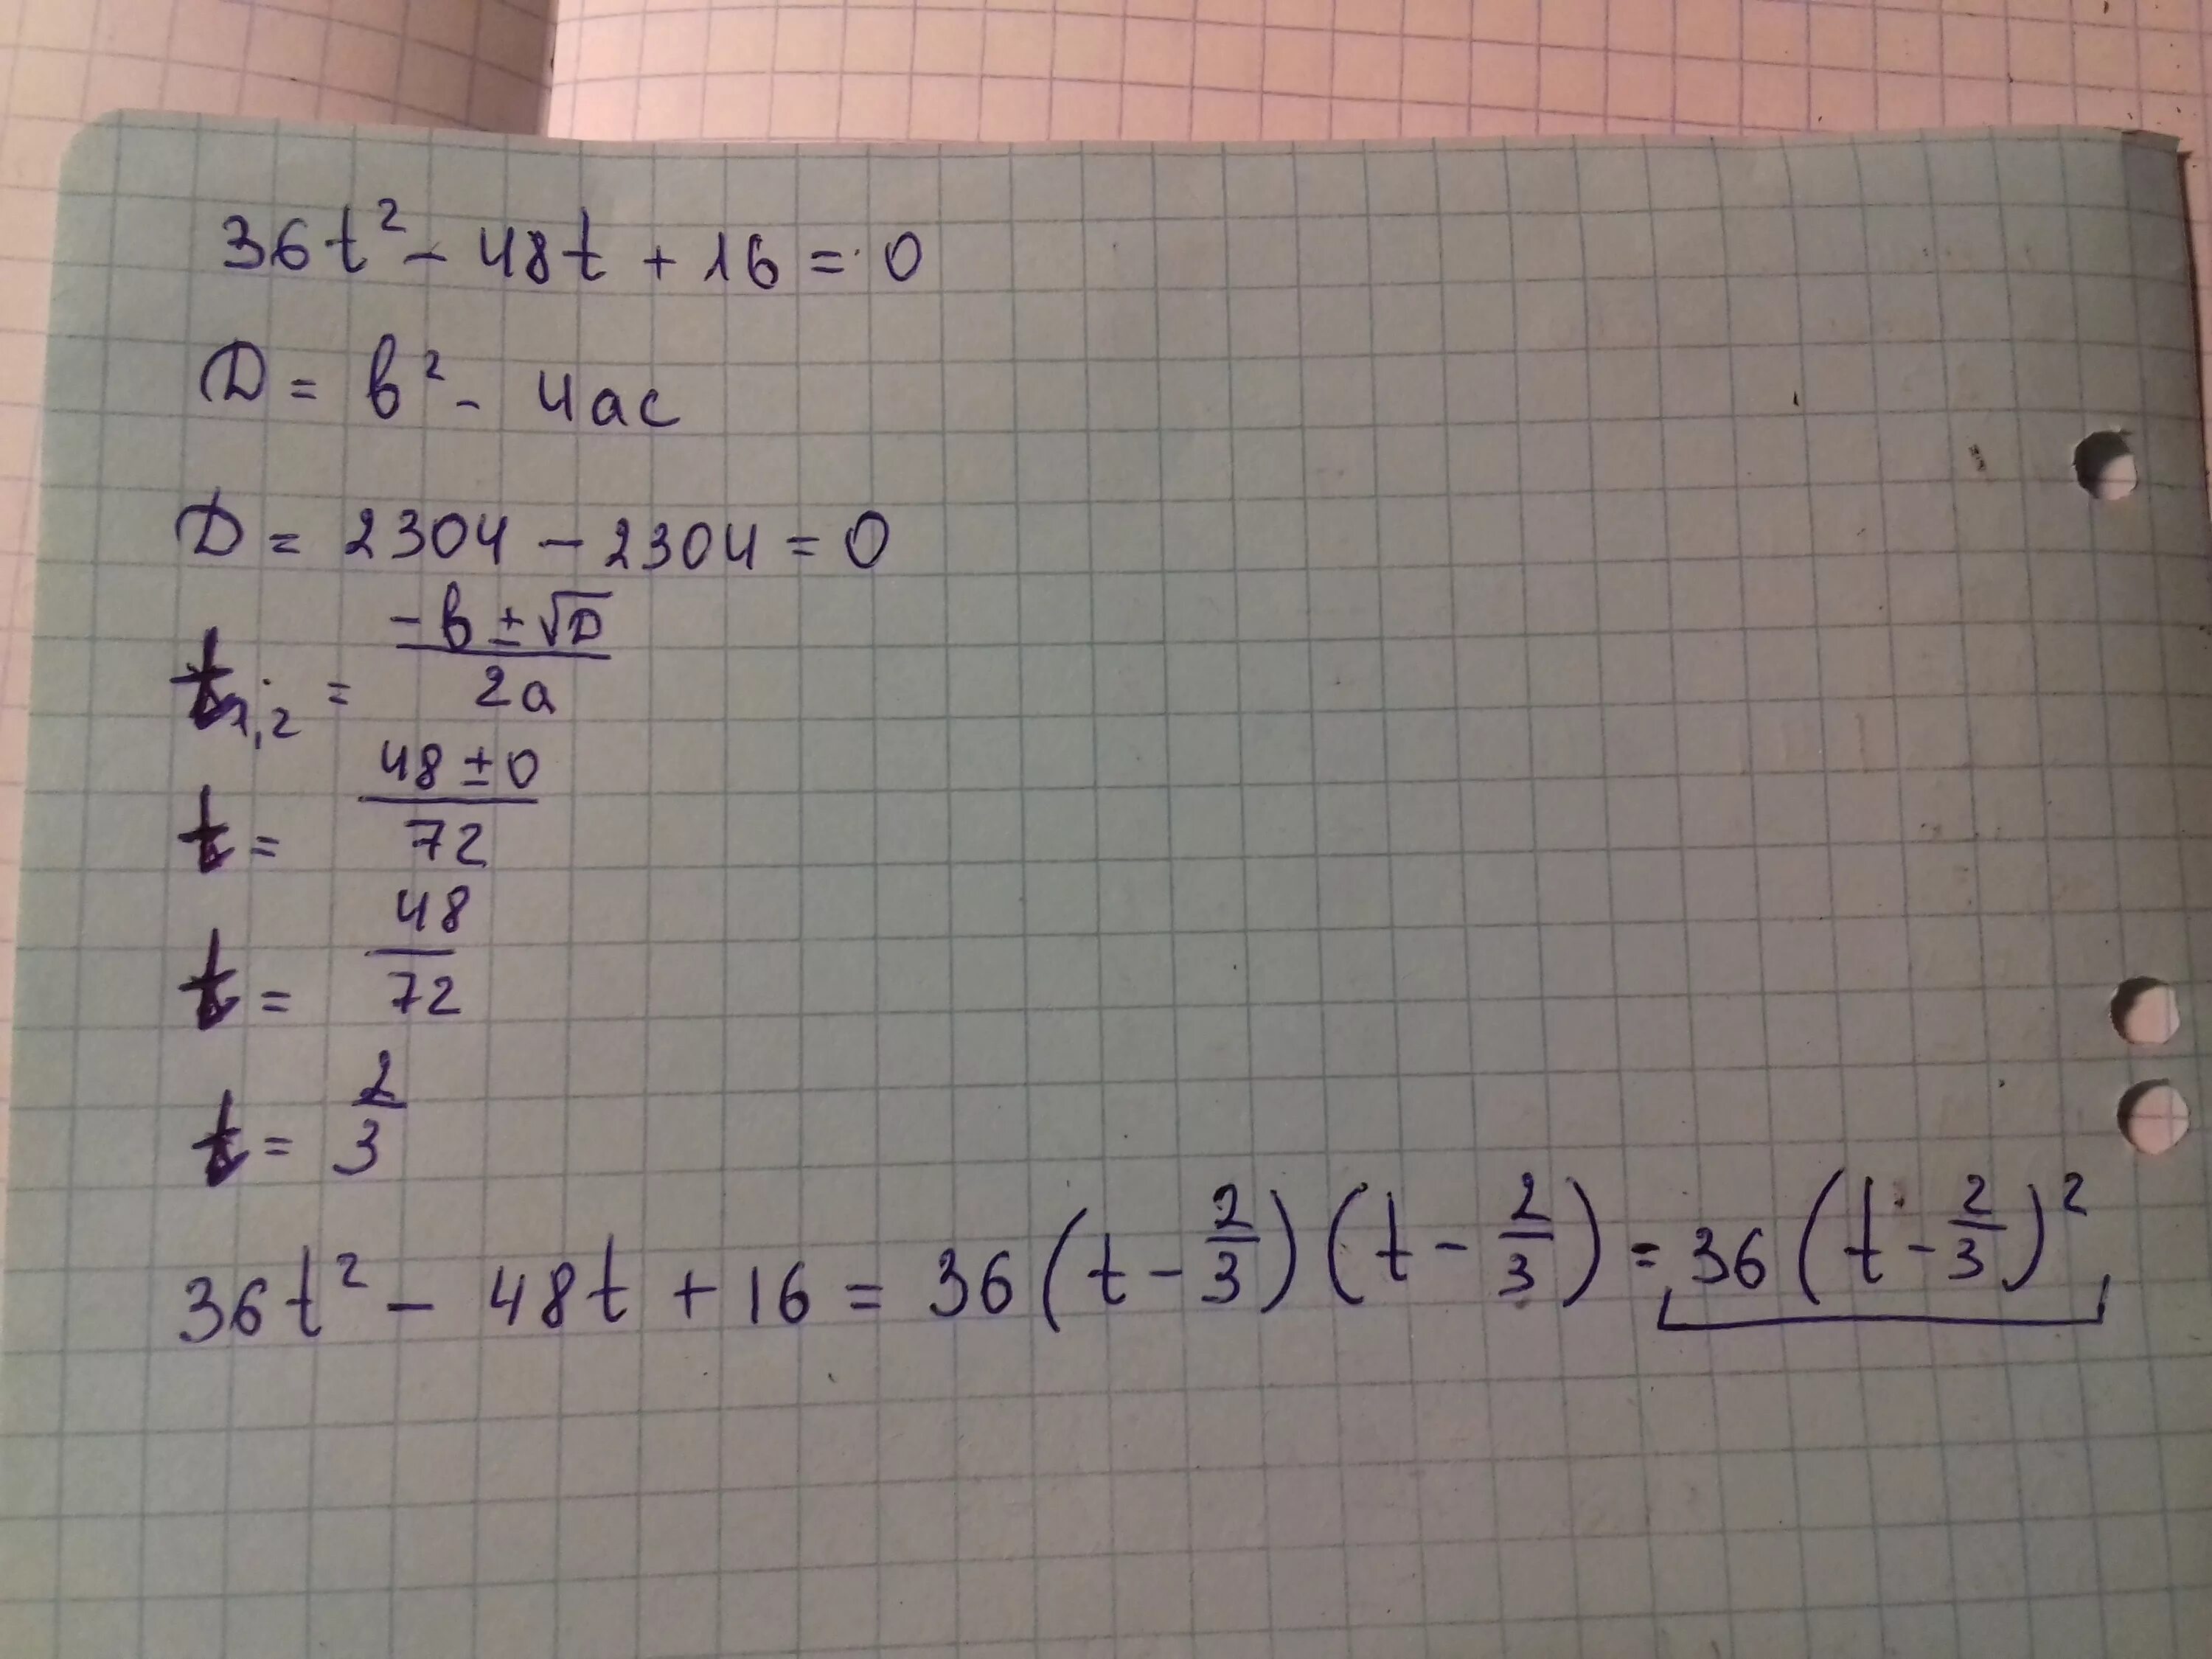 36t² - 48t + 16 = 0
D = b² - 4ac
D = 2304 - 2304 = 0
t₁,₂ = (-b ± √D) / 2a
t = (48 ± 0) / 72
t = 48 / 72
t = 2 / 3
36t² - 48t + 16 = 36(t - 2/3)(t - 2/3) = 36(t - 2/3)²